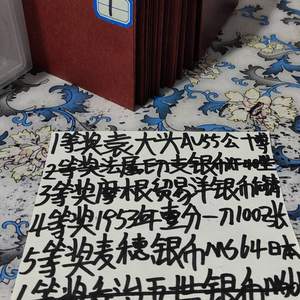 1等奖袁大头AU55公博
2等奖法属印支银币
3等奖摩根贸易洋银币
4等奖1953年壹分一刀100张
5等奖麦穗银币MS64日本
6等奖乔治五世银币MS6